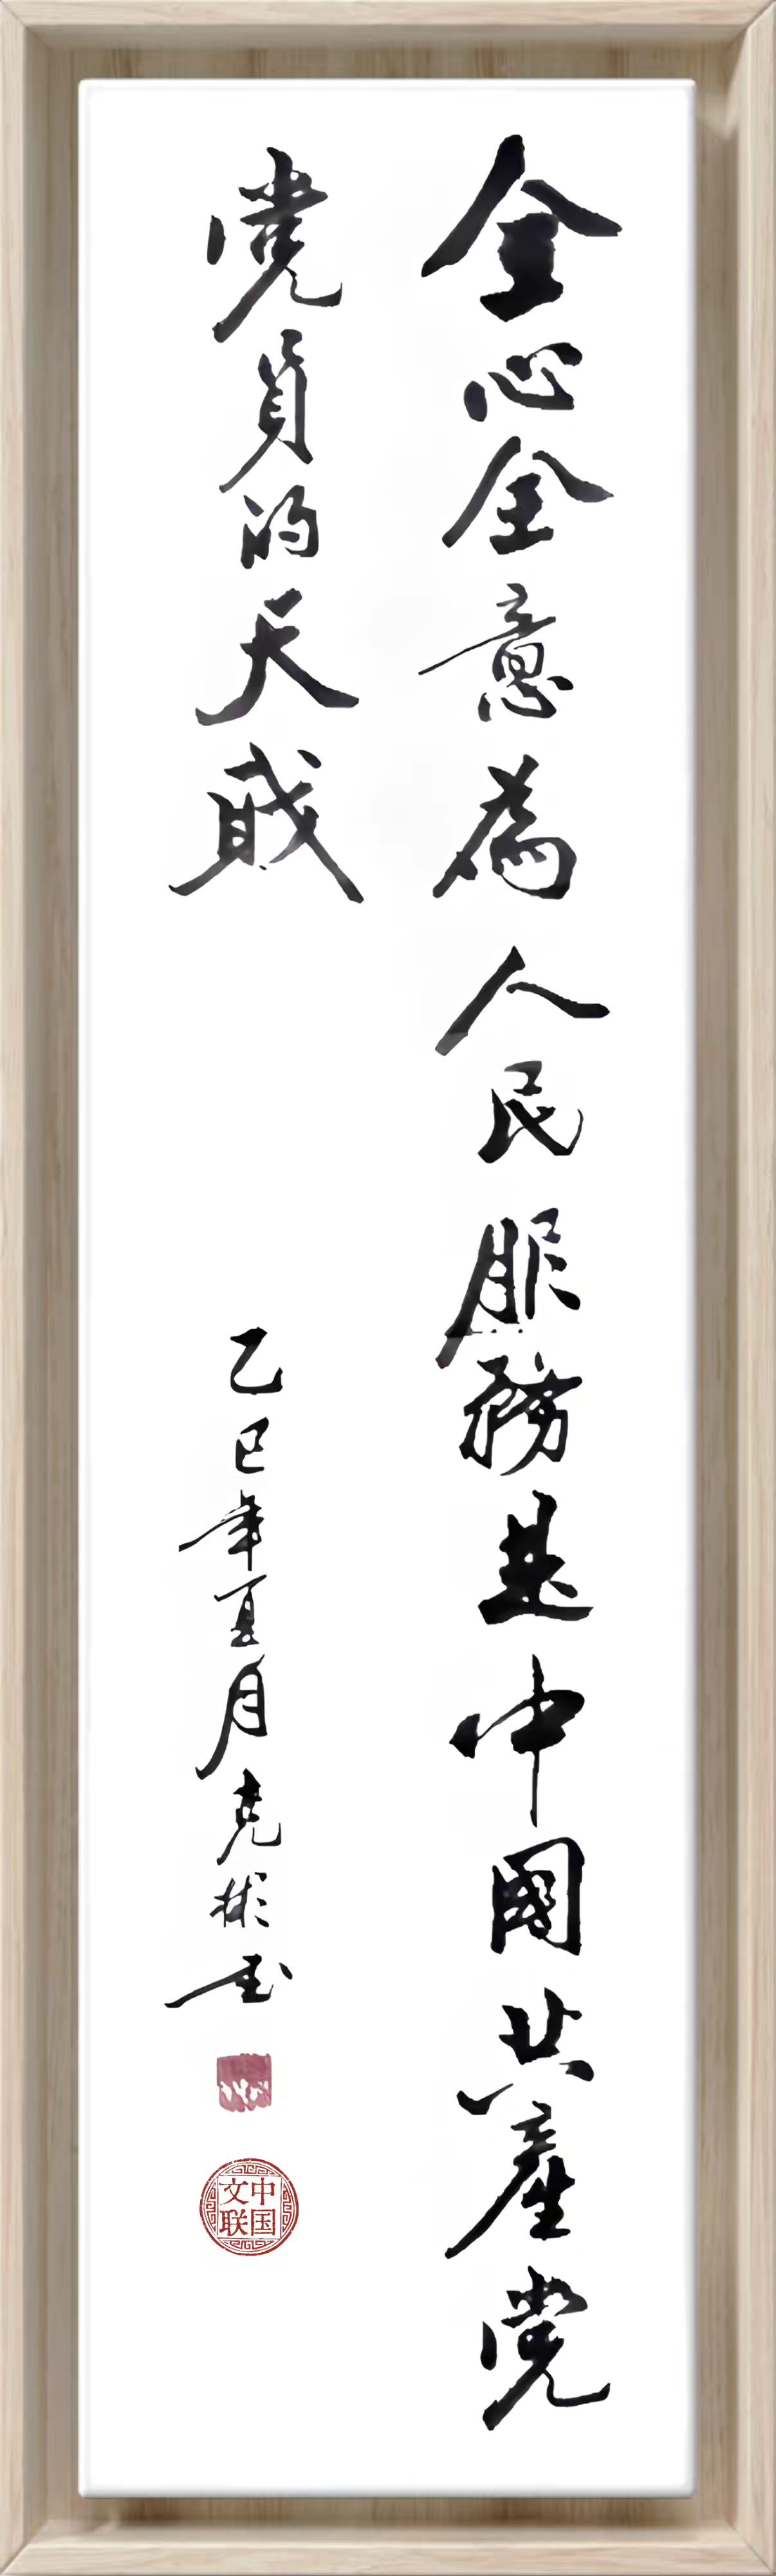 全心全意為人民服務是中國共產党
党員的天職
乙巳年夏月克彬书
中国文联